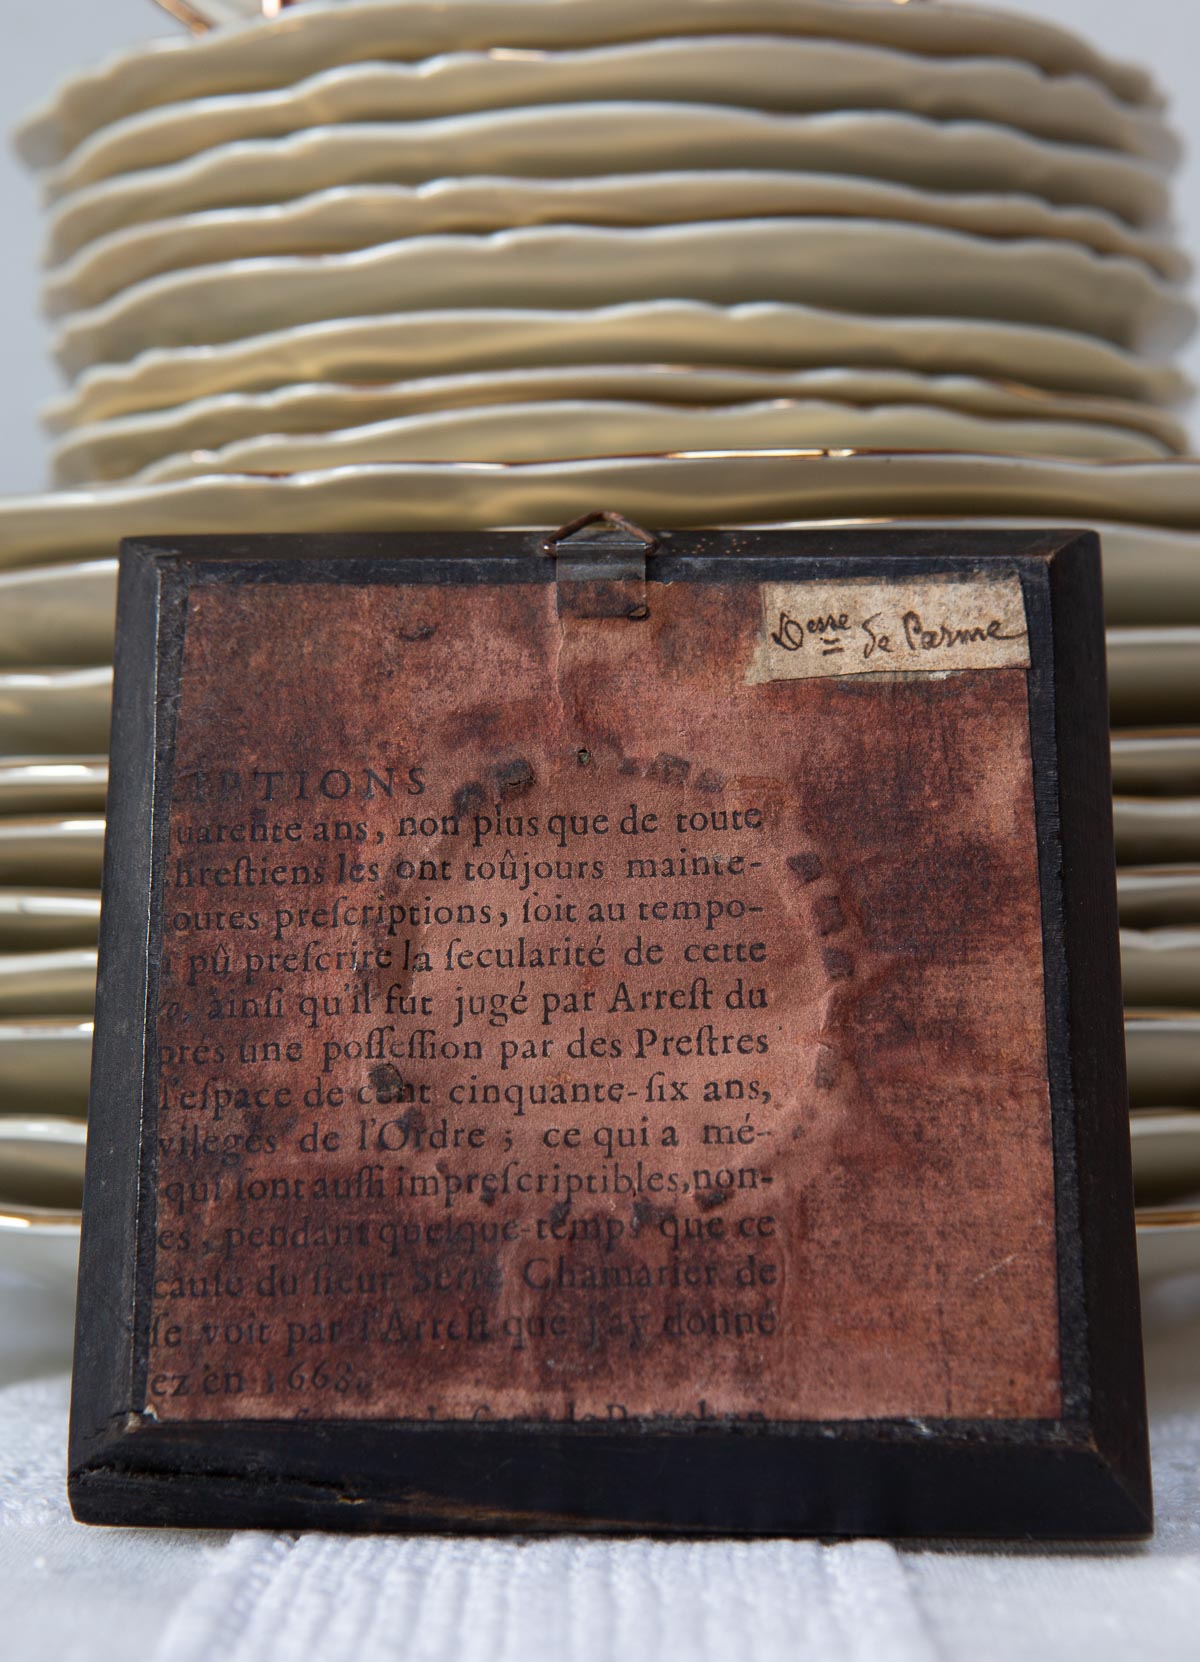 Desse de Parme
EPTIONS
uarente ans, non plus que de toute
hreſtiens les ont toûjours mainte-
outes preſcriptions, ſoit au tempo-
pû preſcrire la ſecularité de cette
ainſi qu'il fut jugé par Arreſt du
prés une poſſeſſion par des Preſtres
l'eſpace de cent cinquante-ſix ans,
vileges de l'Ordre ; ce qui a mé-
qui ſont auſſi impreſcriptibles, non-
es, pendant quelque-temps que ce
cauſe du ſieur Chamarier de
ſe voit par l'Arreſt que j'ay donné
ez en 1668.